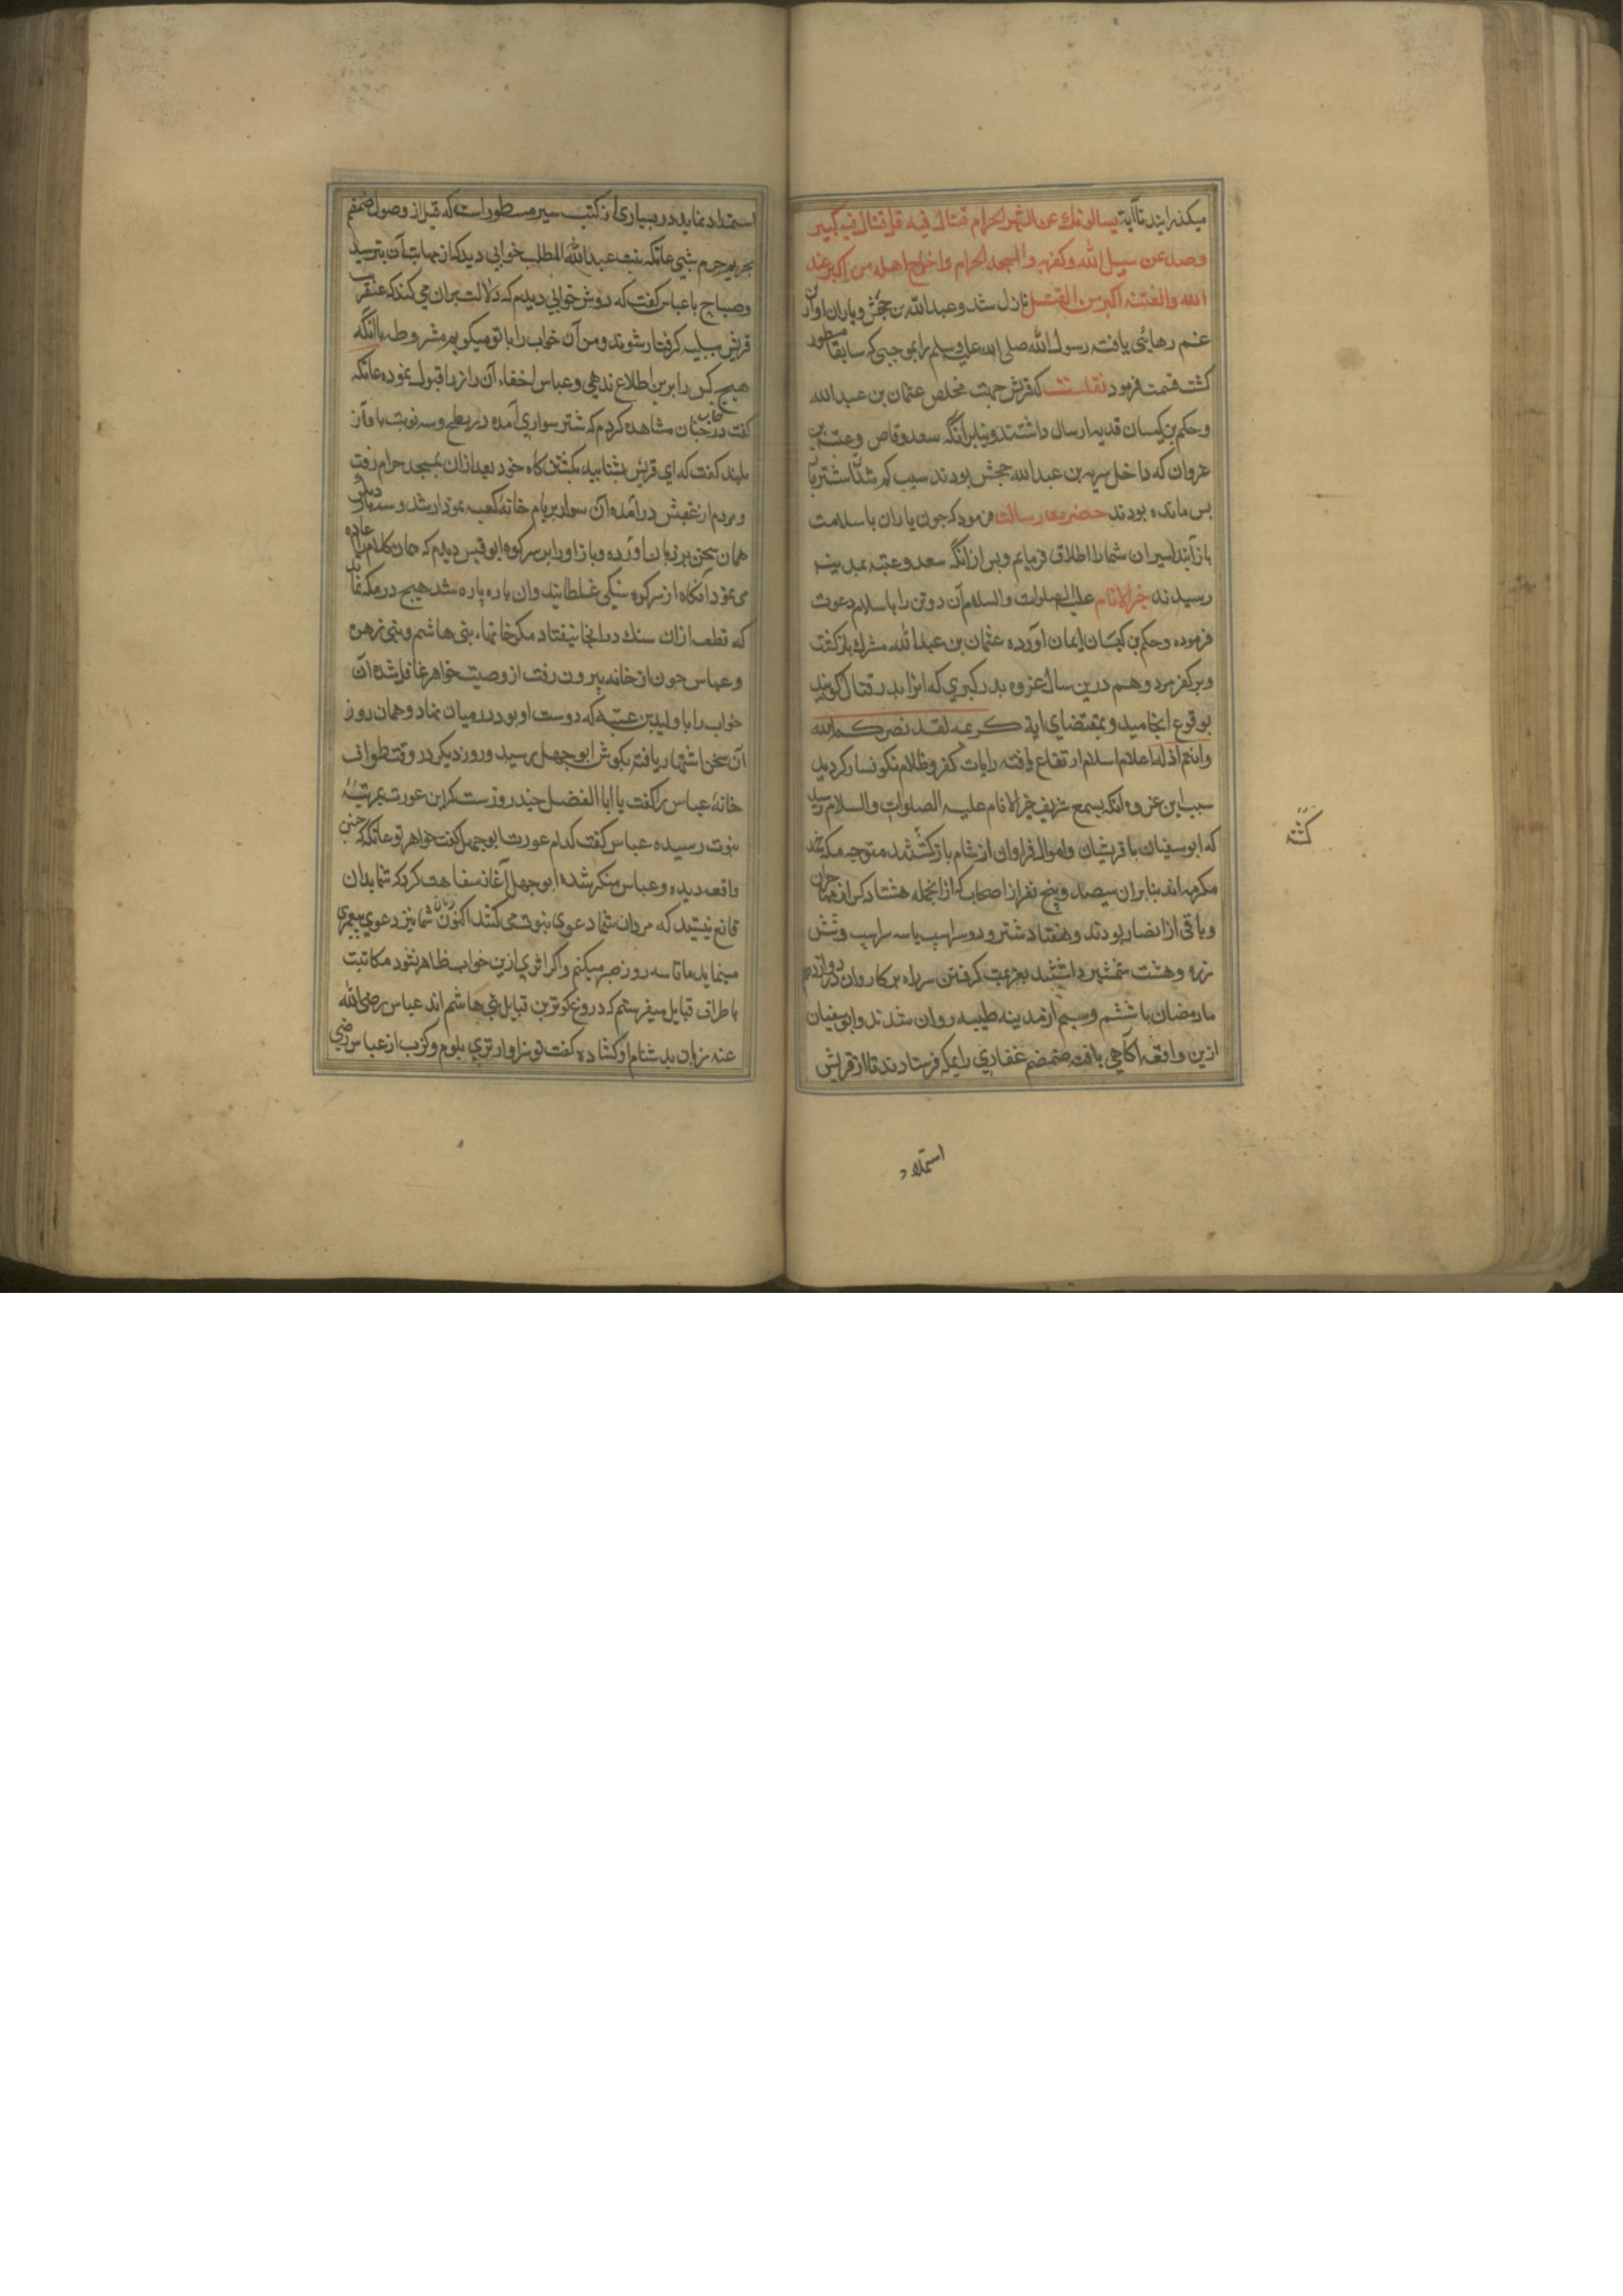 میکذرانیدند تا آیة یسالونك عن الشهر الحرام قتال فیه قل قتال فیه کبیر
وصد عن سبیل الله وکفر به والمسجد الحرام واخراج اهله منه اکبر عند
الله والفتنه اکبر من القتل نازل شد وعبدالله بن جحش ویاران او از آن
غم رهائی یافته رسول الله صلی الله علیه وسلم را بموجبی که سابقا مسطور
کشت قسمت فرمود نقلست که قریش جهت مخلص عثمان بن عبدالله
وحکم بن کیسان فدیه ارسال داشتند وبنابر آنکه سعد وقاص وعتبه بن
غزوان که داخل سریه بن عبدالله جحش بودند سبب کم شدن شتر باز
پس مانده بودند حضرت رسالت فرمود که چون یاران با سلامت
باز آیند اسیران شما را اطلاق فرمایم وپس از آنکه سعد وعتبه بمدینه
رسیدند خیر الانام علیه الصلوات والسلام آن دو تن را باسلام دعوت
فرموده وحکم بن کیسان ایمان آورده عثمان بن عبدالله مشرك باز کشت
وبر کفر مرد وهم درین سال غزوه بدر کبری که انرا بدر قتال کویند
بوقوع انجامید وبمقتضای ایة کریمه لقد نصرکم الله
وانتم اذله اعلام اسلام ارتفاع یافته رایات کفر وظلام نکونسار کردید
سبب این غزوه آنکه بسمع شریف خیر الانام علیه الصلوات والسلام رسید
که ابوسفیان با قریشیان واموال فراوان از شام باز کشته متوجه مکه شده
مکرمه اند بنابران سیصد وپنج نفر از اصحاب که ازانجمله هشتاد کس از مهاجران
وباقی از انصار بودند وهفتاد شتر ودو اسب یا سه اسب وشش
زره وهشت شمشیر داشتند بعزیمت کرفتن سر راه بر کاروان در دوازدهم
ماه رمضان با ششم وسیم از مدینه طیبه روان شدند وابوسفیان
ازین واقعه آکاهی یافته ضمضم غفاری را بمکه فرستادند تا از قریش
کشته
استمداد
استمداد نماید در بسیاری از کتب سیر مسطور است که قبل از وصول ضمضم
بحریم حرم شبی عاتکه بنت عبدالله المطلب خوابی دید که از مهابت آن بترسید
وصباح با عباس کفت که دوش خوابی دیدم که دلالت بران می کند که عنقریب
قریش ببلیه کرفتار شوند ومن آن خواب را با تو میکویم مشروط باانکه
هیچ کس را برین اطلاع ندهی وعباس اخفاء آن راز را قبول نموده عاتکه
کفت در خواب چنان مشاهده کردم که شتر سواری آمده در ابطح وسه نوبت باواز
بلند کفت که ای قریش بشتابید بکشتن کاه خود بعد ازان بمسجد حرام رفت
ومردم از عقبش در آمده آن سوار بر بام خانه کعبه نمودار شد وسه بار دیکر
همان سخن بر زبان آورده وباز او را بر سر کوه ابو قبیس دیدم که همان کلام را اعاده
می نمود آنکاه از سر کوه سنکی غلطانید وان پاره پاره شد هیچ در مکه نماند
که قطعه ازان سنك در انجا نیفتاد مکر خانهاء بنی هاشم وبنی زهره
وعباس چون از خانه بیرون رفت از وصیت خواهر غافل شده آن
خواب را با ولید بن عتبه که دوست او بود در میان نهاد وهمان روز
آن سخن اشتهار یافته بکوش ابو جهل رسید وروز دیکر در وقت طواف
خانه عباس را کفت یا ابا الفضل چند روزست که این عورت بمرتبه
نبوت رسیده عباس کفت کدام عورت ابو جهل کفت خواهر تو عاتکه که چنین
واقعه دیده وعباس منکر شده ابو جهل آغاز سفاهت کرد که شما بدان
قانع نیستید که مردان شما دعوی نبوت می کنند اکنون زنان شما نیز دعوی پیغمبری
مینمایند ما تا سه روز صبر میکنیم واکر اثری ازین خواب ظاهر نشود مکاتبت
باطراف قبایل میفرستم که دروغ کوترین قبایل بنی هاشم اند عباس رضی الله
عنه زبان بدشنام او کشاده کفت تو سزاوار تری بلوم وکذب از عباس رضی